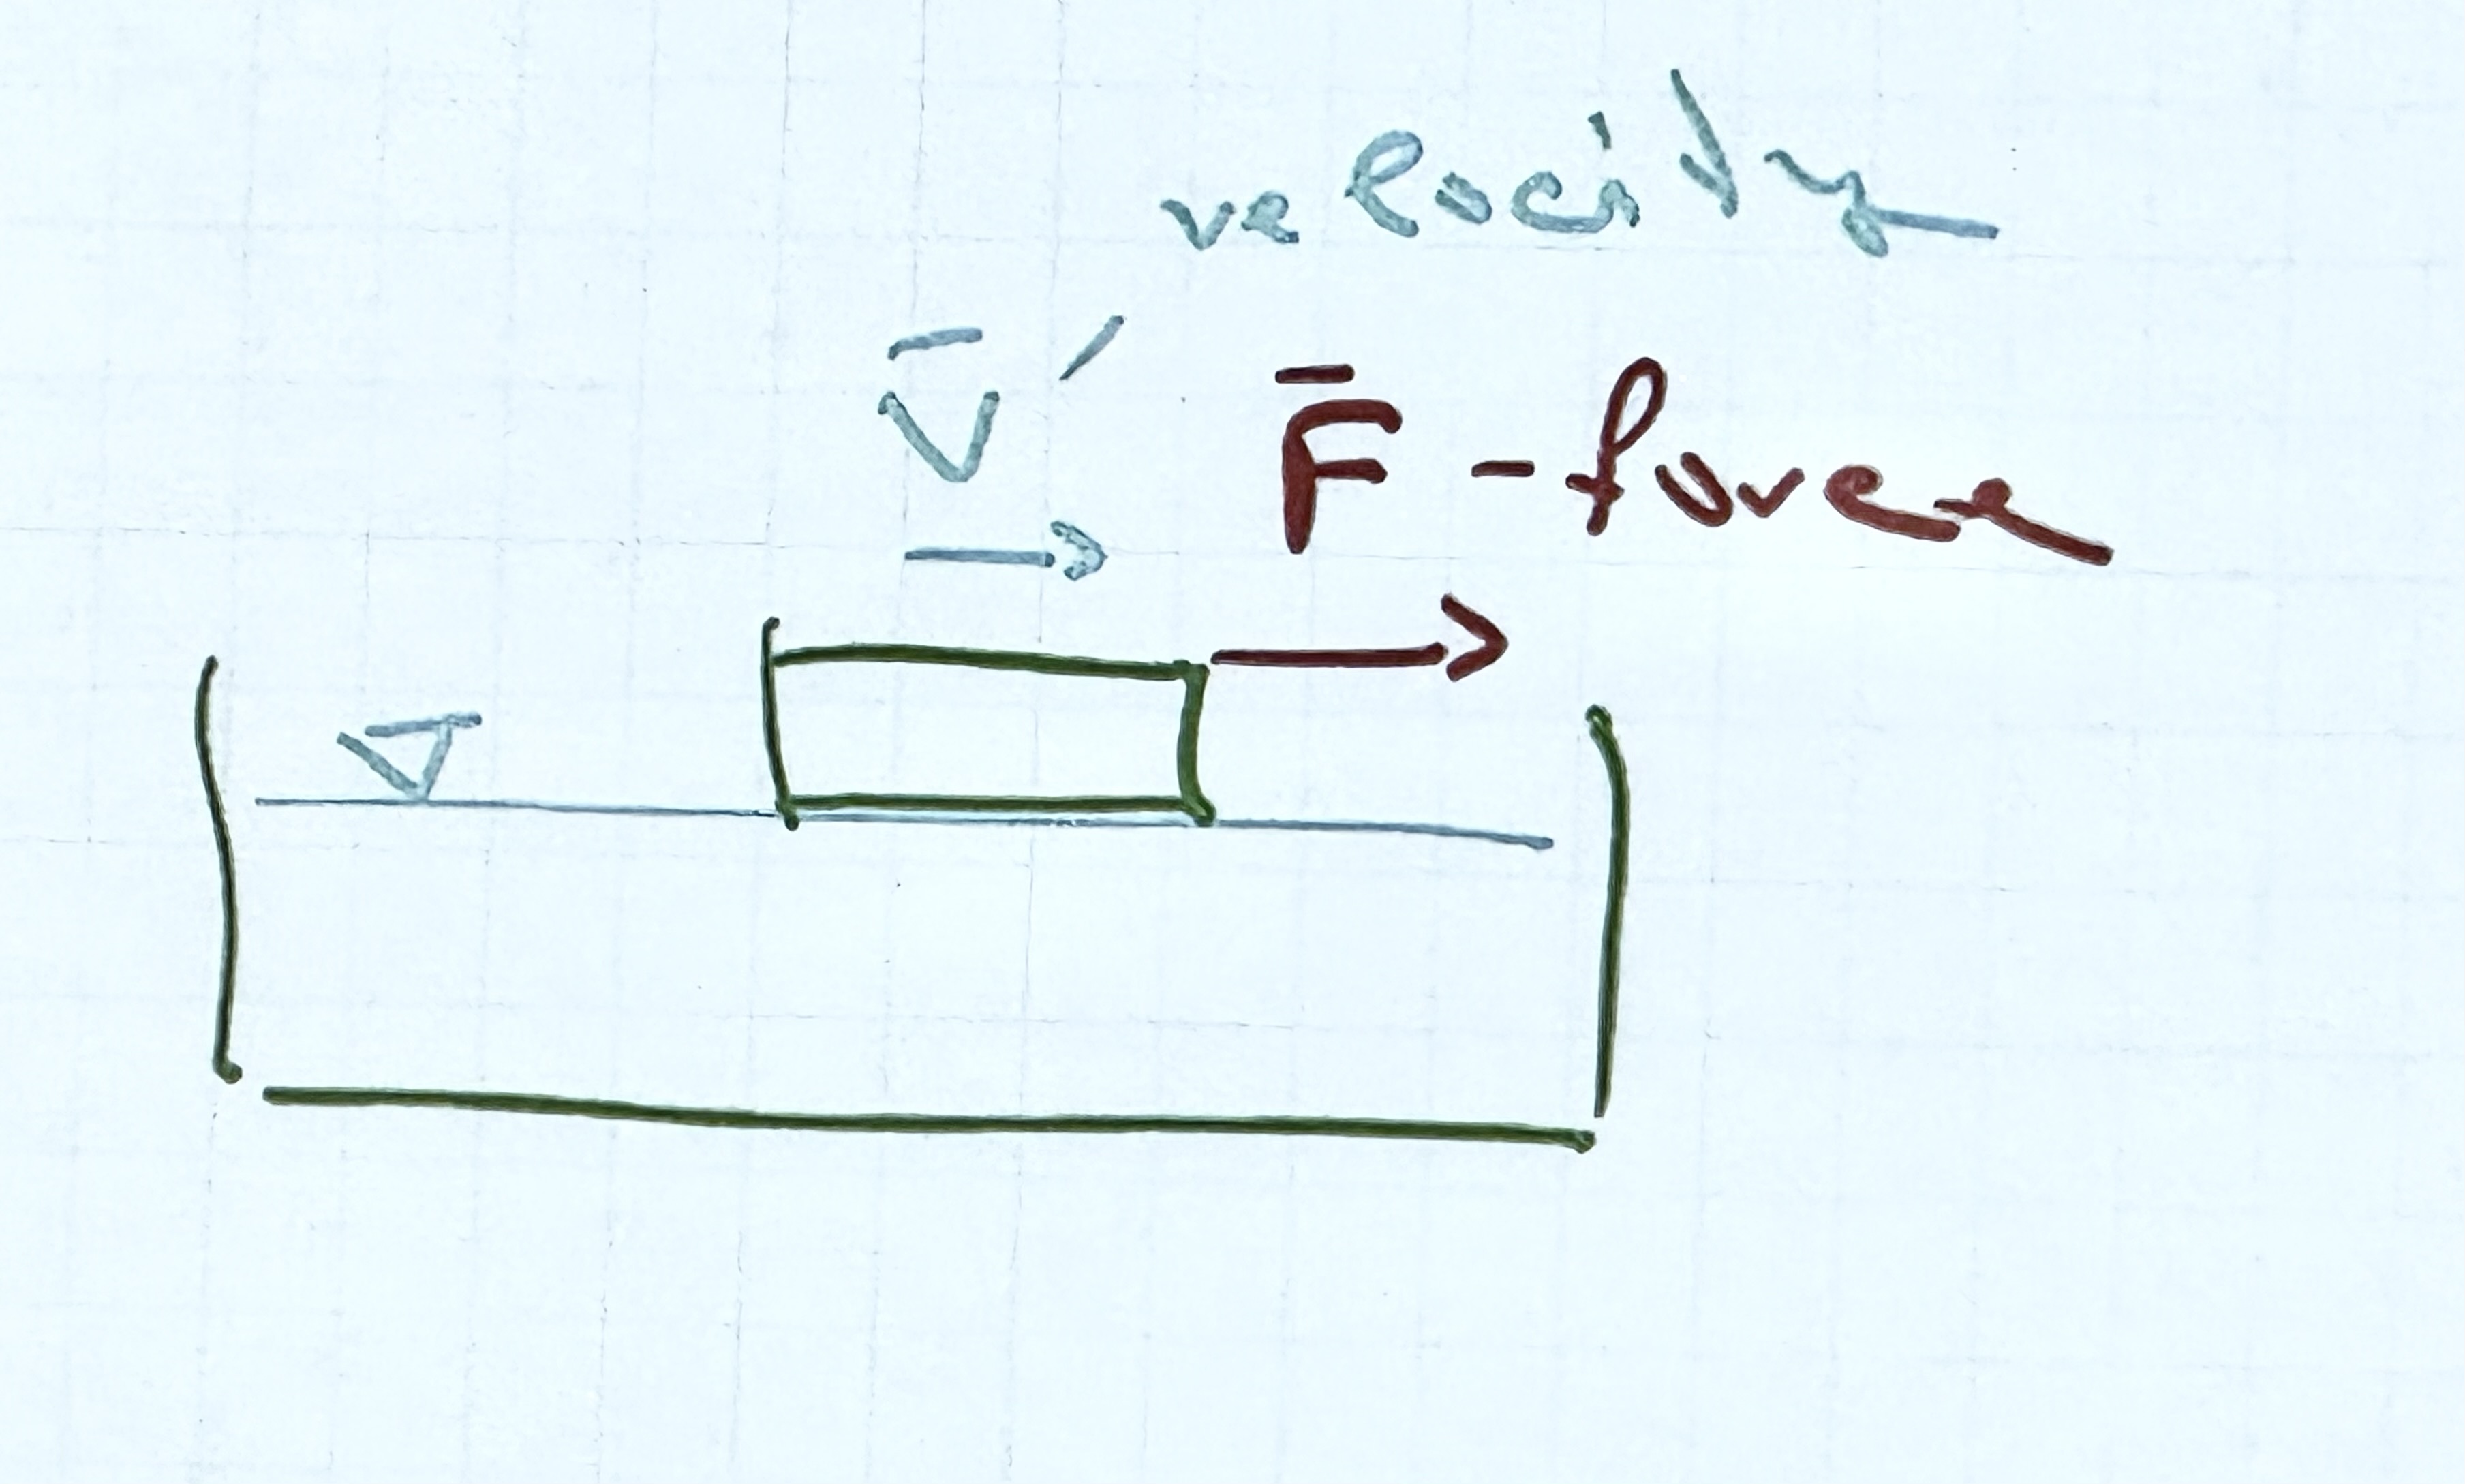 velocity
V̄′
F̄ - force